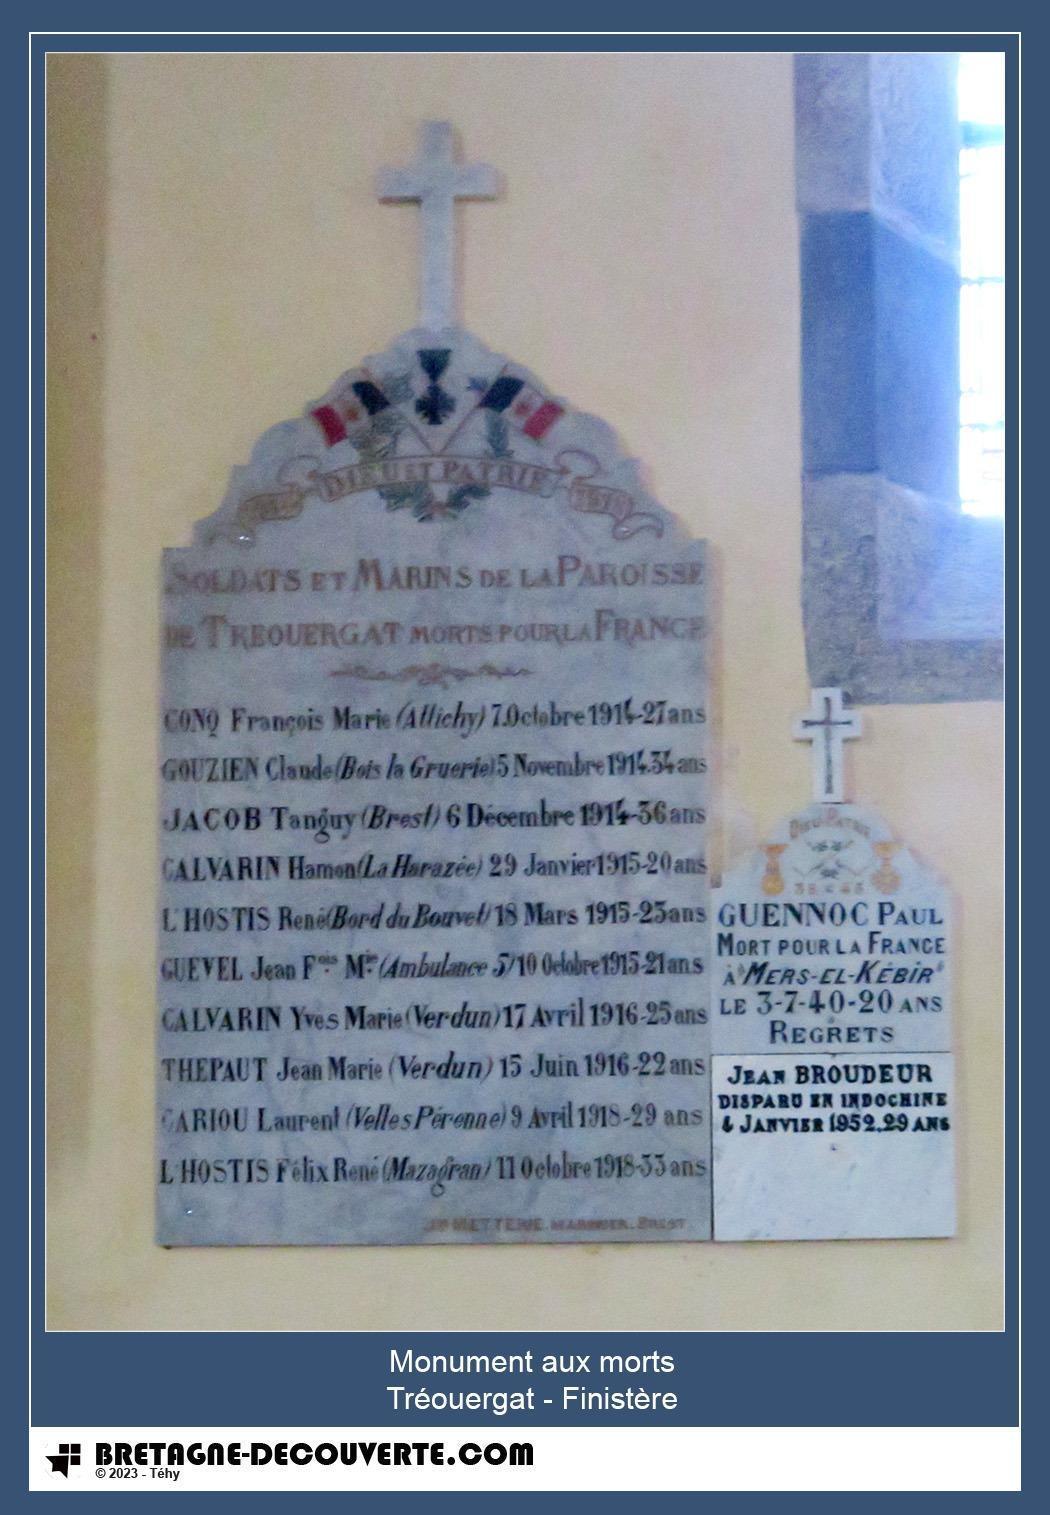 DIEU ET PATRIE
1914
1918
SOLDATS ET MARINS DE LA PAROISSE
DE TREOUERGAT MORTS POUR LA FRANCE
CONQ François Marie (Attichy) 7.Octobre 1914-27 ans
GOUZIEN Claude (Bois la Gruerie) 5 Novembre 1914.34 ans
JACOB Tanguy (Brest) 6 Décembre 1914-36 ans
CALVARIN Hamon (La Harazée) 29 Janvier 1915-20 ans
L'HOSTIS René (Bord du Bouvet) 18 Mars 1915-23 ans
GUEVEL Jean Fois Mie (Ambulance 5/10 Octobre 1915-21 ans
CALVARIN Yves Marie (Verdun) 17 Avril 1916-25 ans
THEPAUT Jean Marie (Verdun) 15 Juin 1916-22 ans
CARIOU Laurent (Velles Pérenne) 9 Avril 1918-29 ans
L'HOSTIS Félix René (Mazagran) 11 Octobre 1918-33 ans
BREST
DIEU PATRIE
GUENNOC PAUL
MORT POUR LA FRANCE
À "MERS-EL-KÉBIR"
LE 3-7-40-20 ANS
REGRETS
JEAN BROUDEUR
DISPARU EN INDOCHINE
4 JANVIER 1952.29 ANS
Monument aux morts
Tréouergat - Finistère
BRETAGNE-DECOUVERTE.COM
© 2023 - Téhy